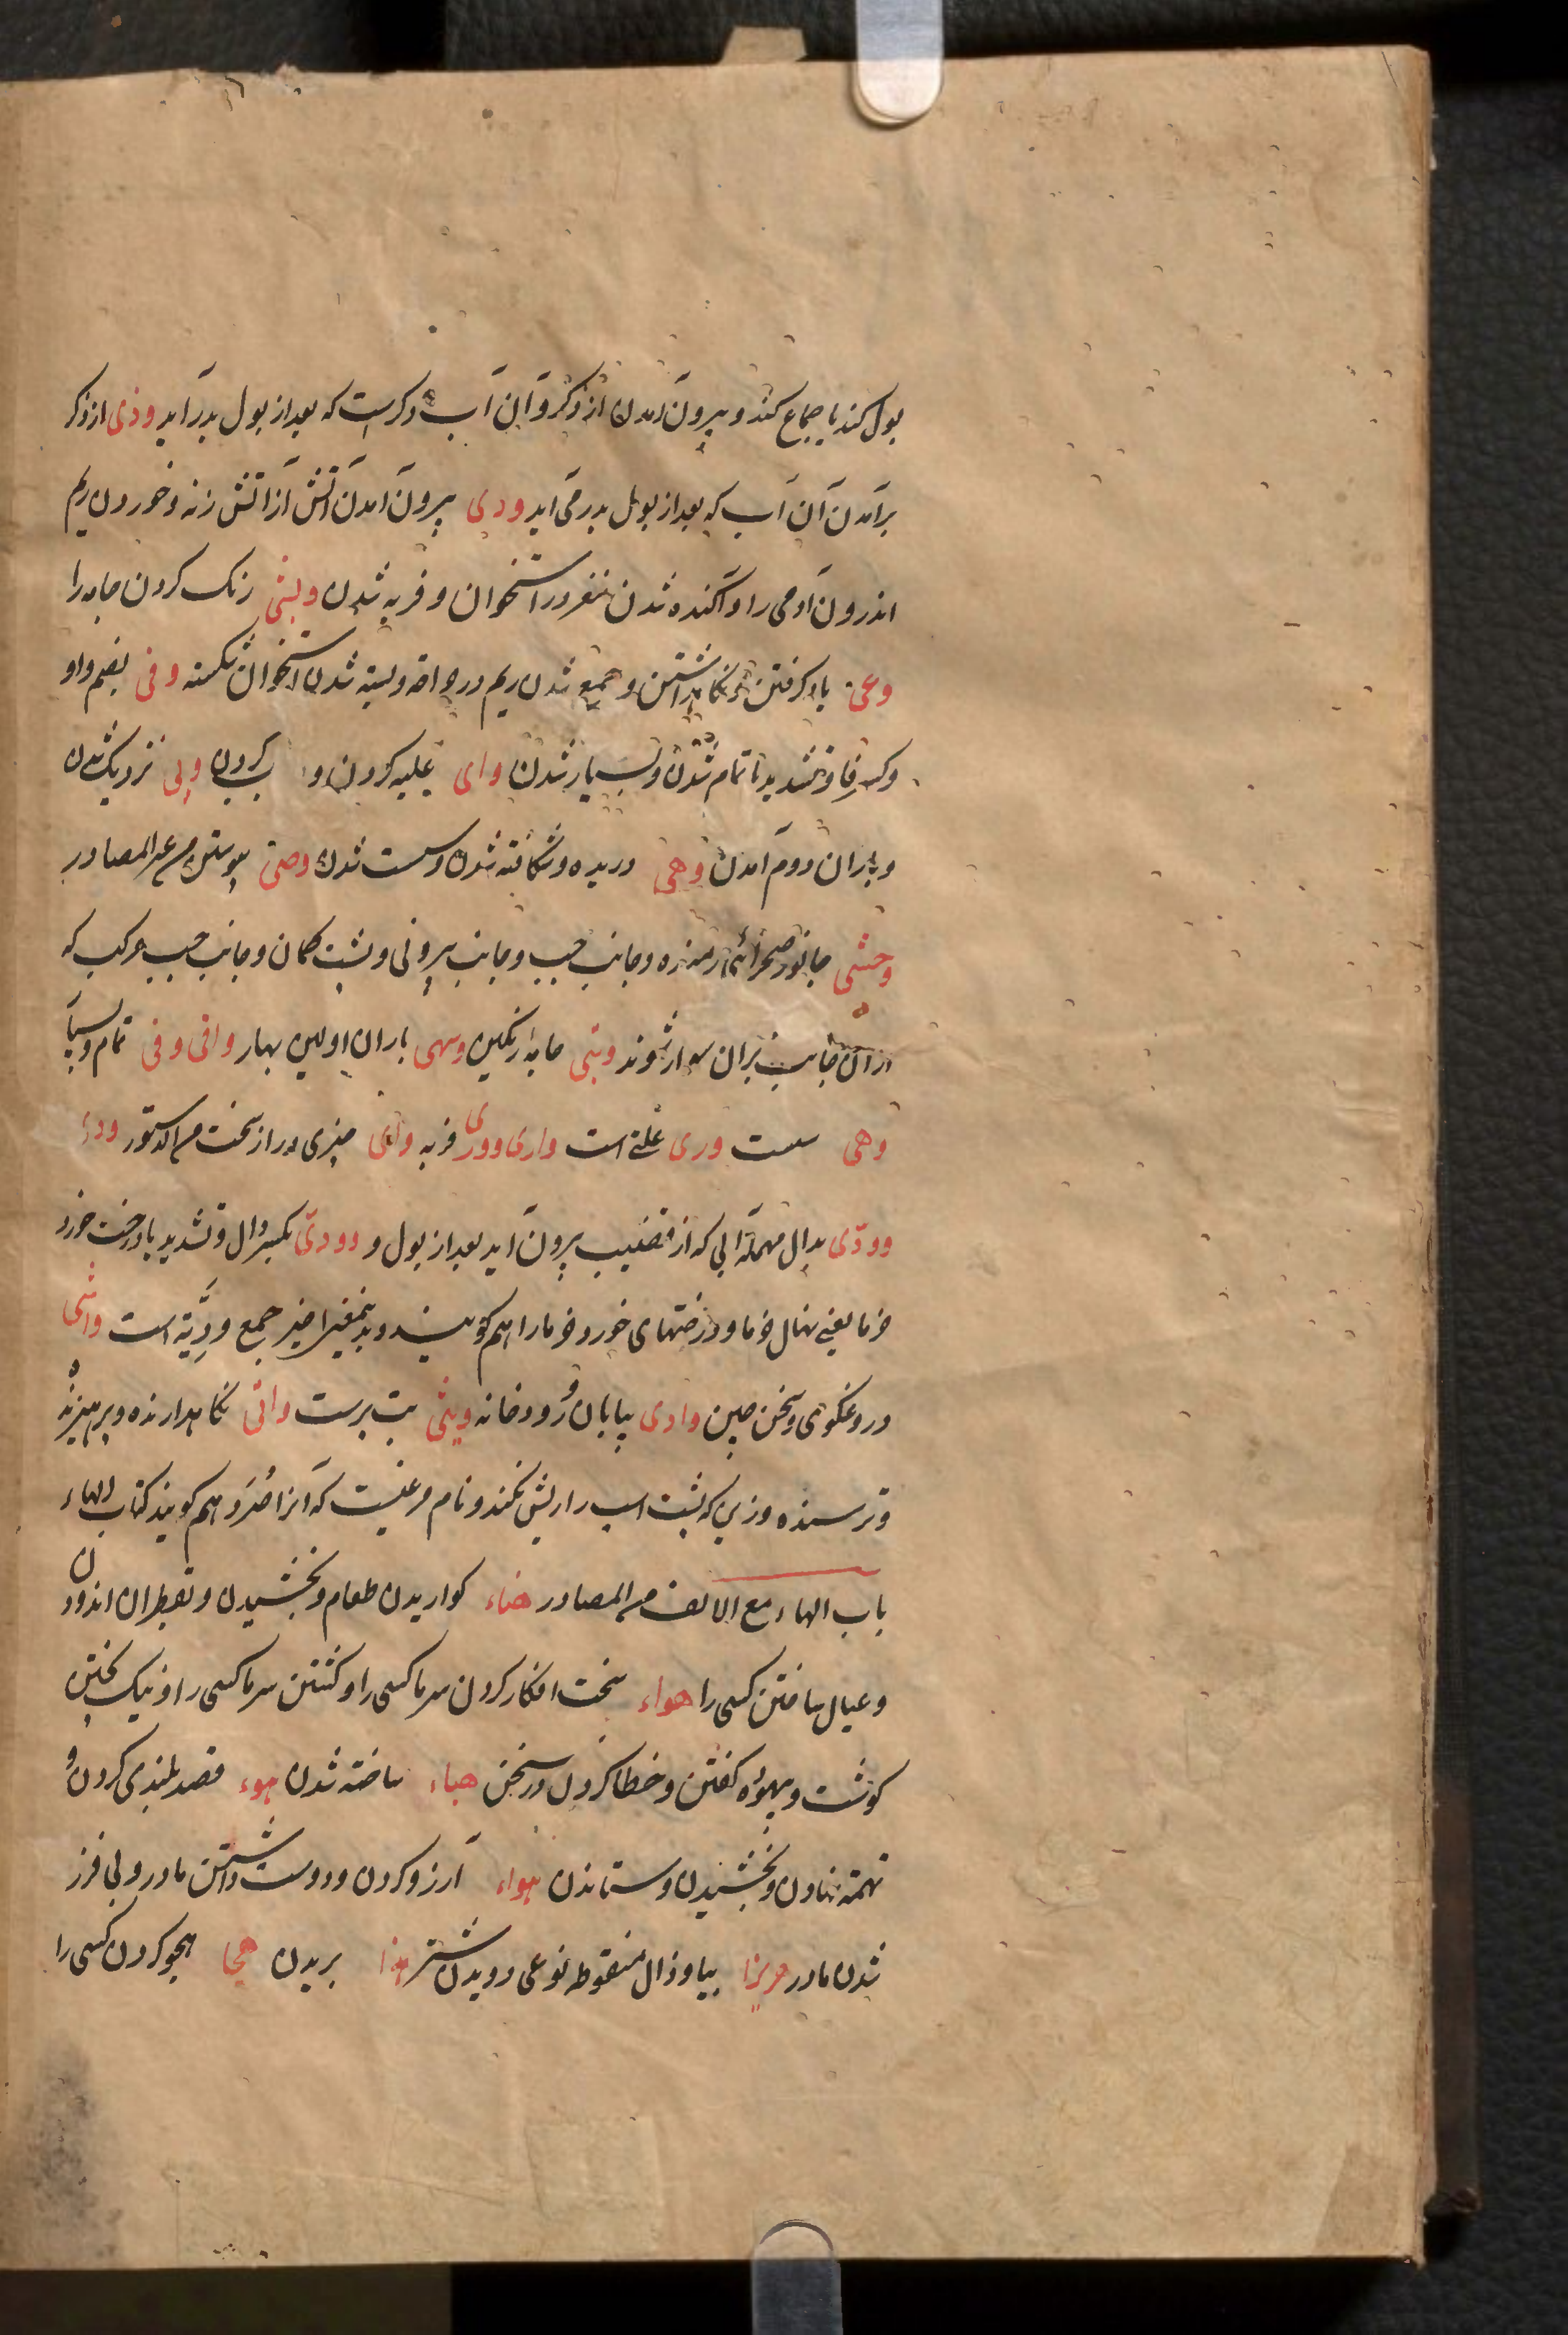 بول کند یا جماع کند و بیرون آمدن از ذکر و آن آب ذکرست که بعد از بول بدر آید وذی از ذکر
برآمدن آن آب که بعد از بول بدر می آید ودی بیرون آمدن آتش از آتش زنه و خوردن ریم
اندرون آدمی را و آکنده شدن مغز در استخوان و فربه شدن وشی رنک کردن جامه را
وعی یاد کرفتن و نکاهداشتن و جمع شدن ریم در جراحه و بسته شدن استخوان شکسته وفی بضم واو
و کسر فا و تشدید یا تمام شدن و بسیار شدن وای غلبه کردن و کردن ولی نزدیک شدن
و باران دوم آمدن وهی دریده و شکافته شدن و سست شدن وصی پیوستن من غیر المصادر
وحشی جانور صحرائی رمنده و جانب چپ و جانب بیرونی و پشت کمان و جانب چپ مرکب که
از آن جانب بران سوار شوند وشی جامه رنکین وسمی باران اولین بهار وافی وفی تمام و بسیا
وهی سست وری علتی است واری ووری فربه وای چیزی دراز سخت ودی
وودی بدال مهمله آبی که از قضیب بیرون آید بعد از بول و وودی بکسر دال و تشدید یا درخت خورد
خرما یعنی نهال خرما و درختهای خورد خرما را هم کویند و بدینمعنی اخیر جمع ودیّه است واشی
دروغکوی و سخن چین وادی بیابان و رودخانه وثنی بت پرست واقی نکاهدارنده و پرهیزنده
و ترسنده و زینی که پشت اسب را ریش نکند و نام مرغیست که آنرا صُرَد هم کویند کتاب الهاء
باب الهاء مع الالف من المصادر هناء کواریدن طعام و بخشیدن و بقطران اندودن
و عیال ساختن کسی را هراء سخت افکار کردن سرما کسی را و کشتن سرما کسی را و نیک پختن
کوشت و بیهوده کفتن و خطا کردن در سخن هیاء ساخته شدن هوء قصد بلندی کردن و
تهمة نهادن و بخشیدن و ستاندن هواء آرزو کردن و دوست داشتن مادر و بی فرز
شدن مادر بیا و ذال منقوطه نوعی دویدن شتر هذا بریدن هجا هجو کردن کسی را